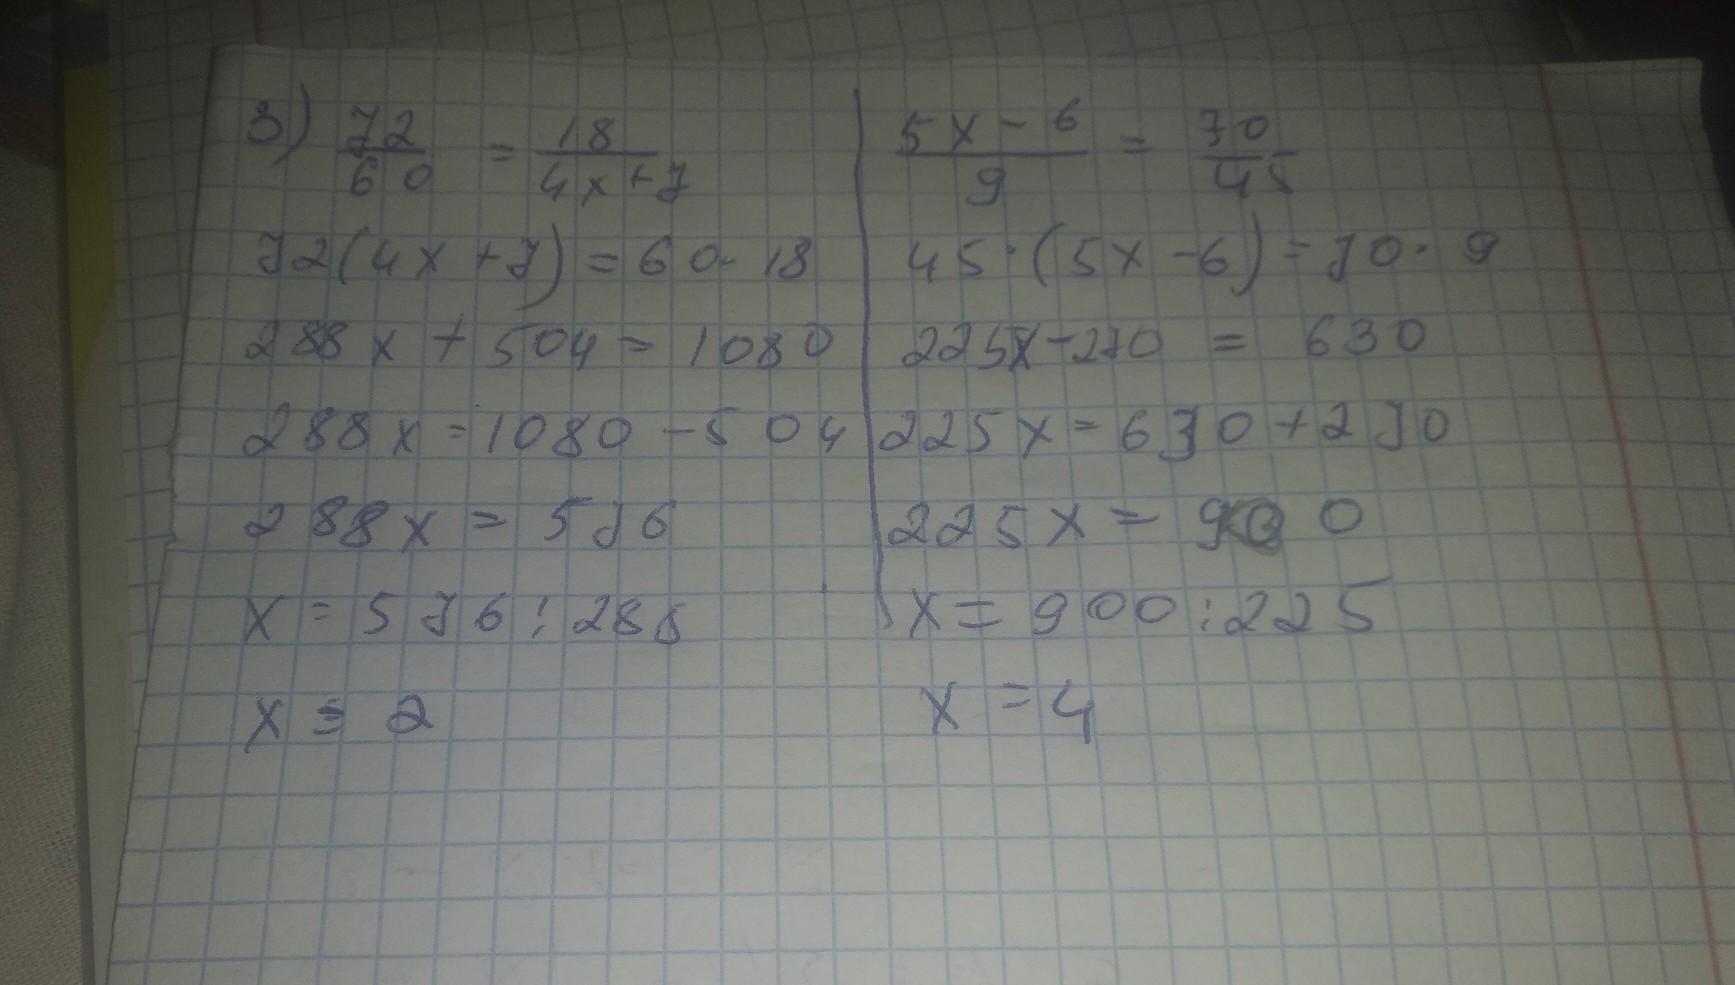 3) 72/60 = 18/(4x+7)
72(4x+7)=60·18
288x+504=1080
288x=1080-504
288x=576
x=576:288
x=2
(5x-6)/9 = 70/45
45·(5x-6)=70·9
225x-270=630
225x=630+270
225x=900
x=900:225
x=4